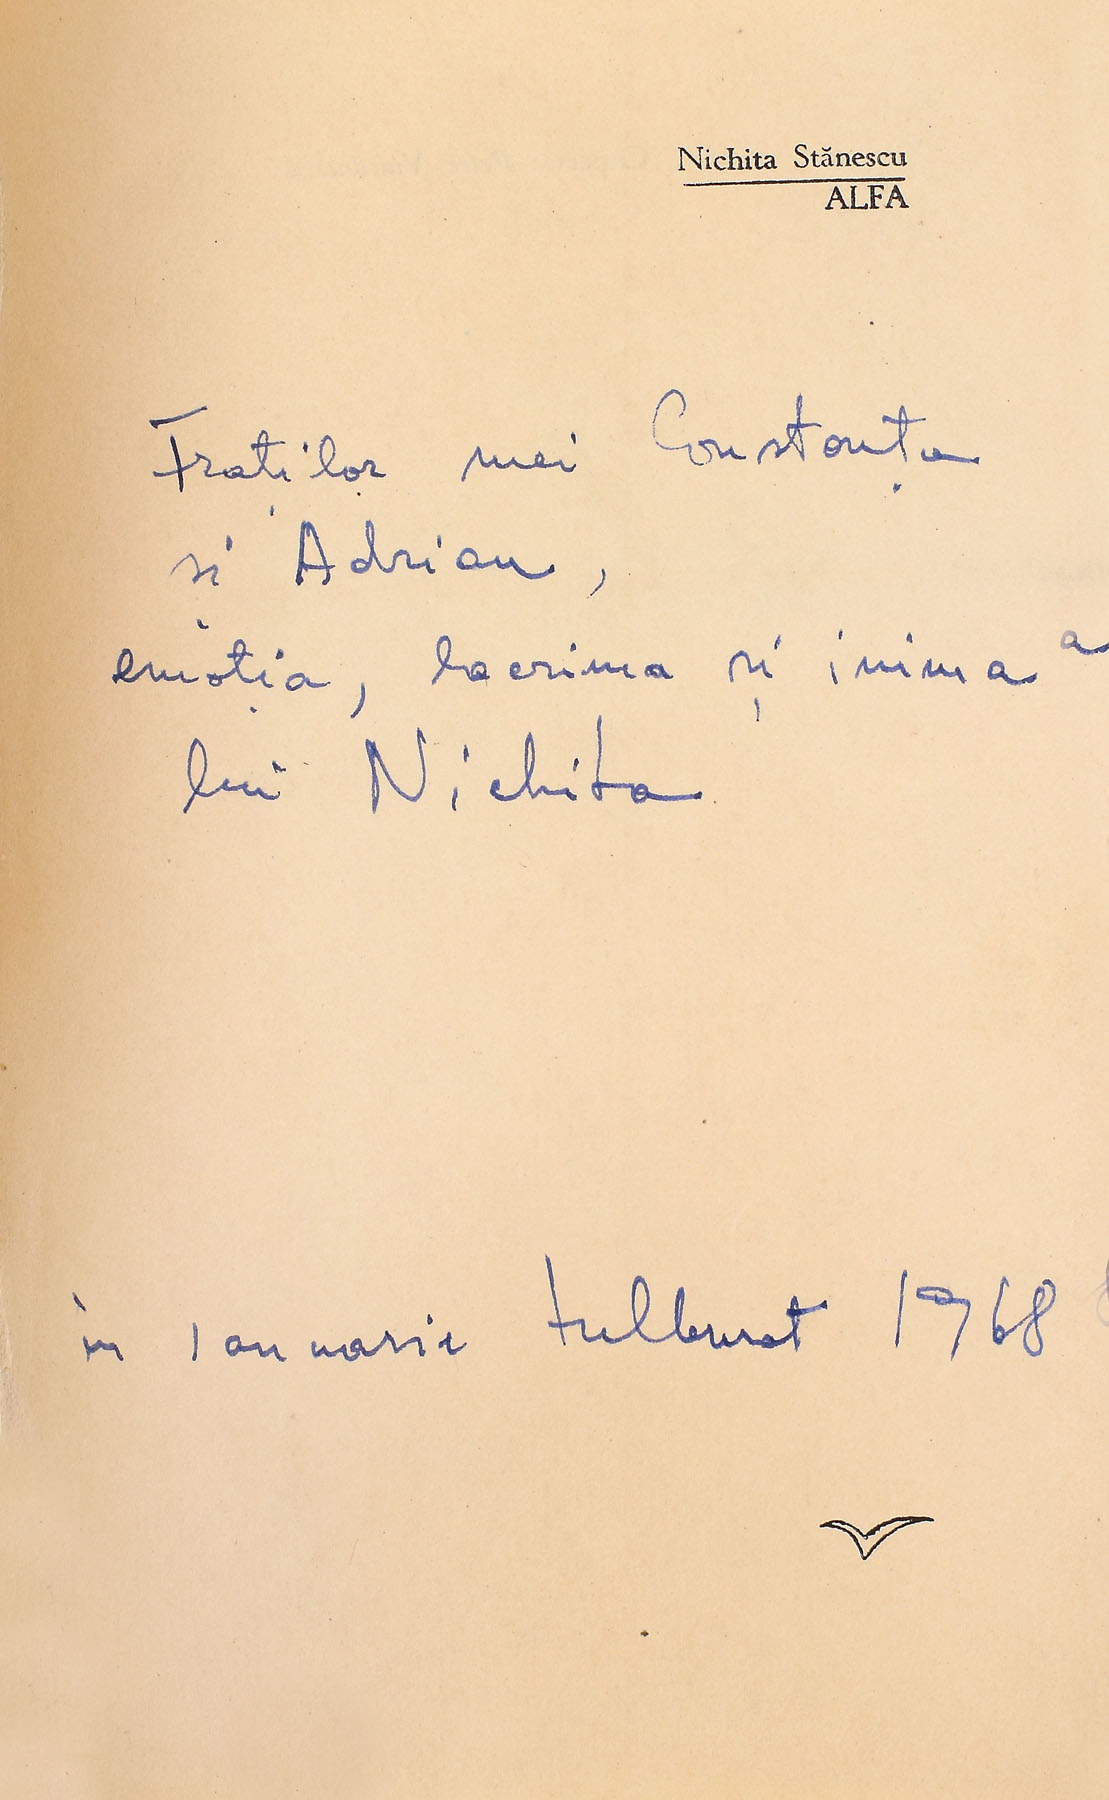 Nichita Stănescu
ALFA
Fraților mei Constanța
și Adrian,
emoția, lacrima și inima a
lui Nichita
in Ianuarie tulburat 1968